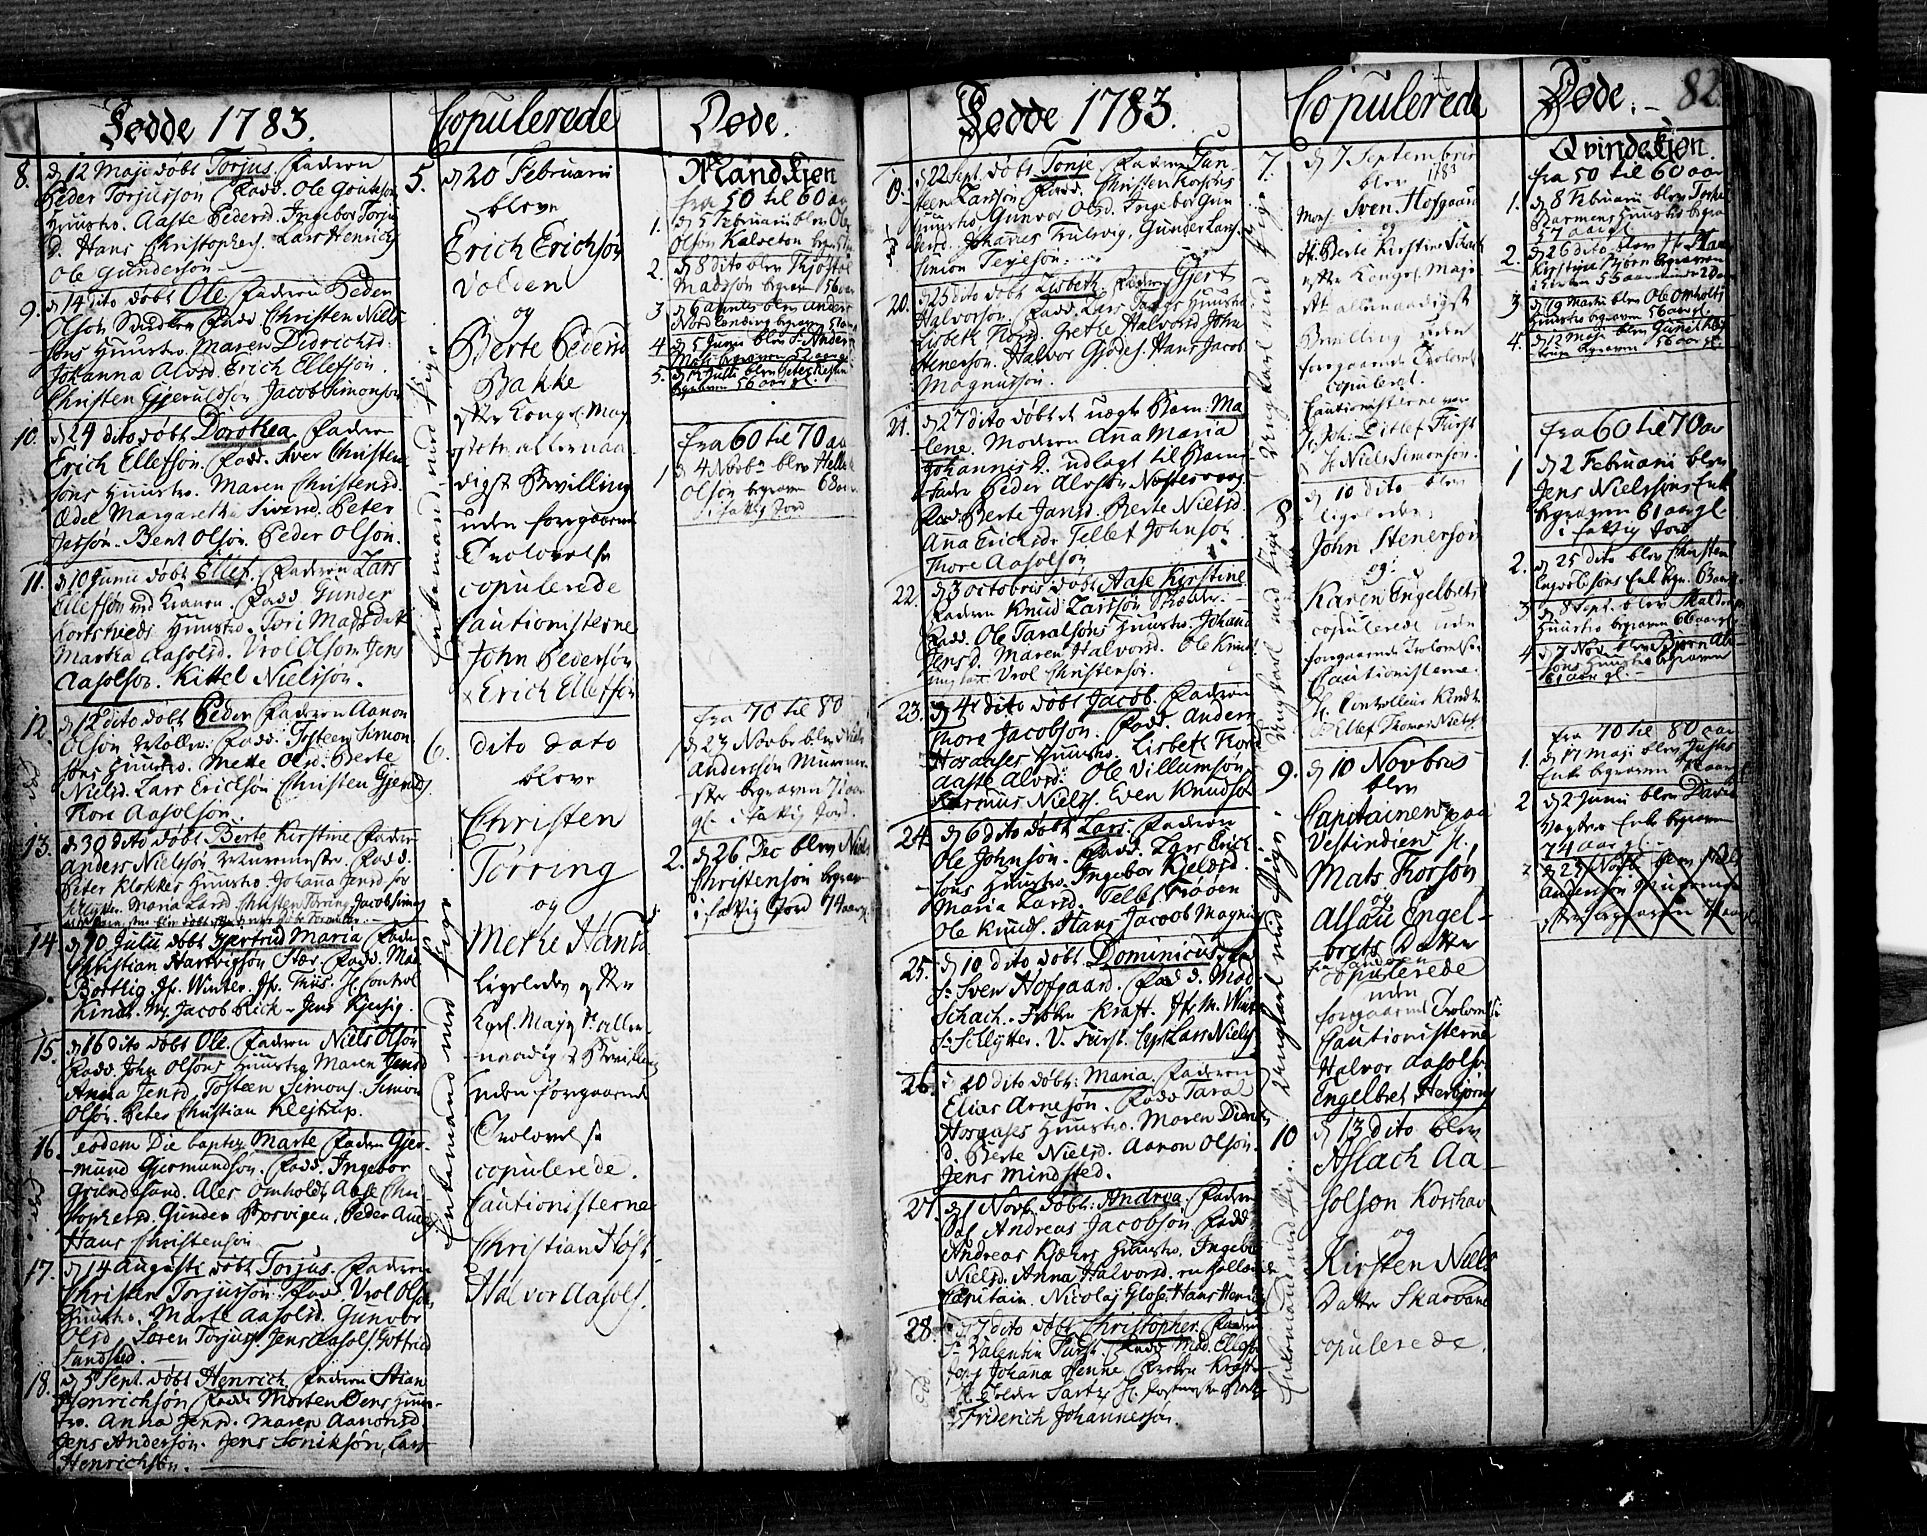 Fødde 1783.
8. d 12 Maji døbt Torjus. Faderen
Peder Torjussøn Fadd. Ole
Huustro. Aaste Pedersd. Ingebor Torju
d. Hans Christophers. Lars Henrichs
Ole Gundersøn
9. d 14 dito døbt Ole. Faderen Peder
Olsøn Fadd. Christen Niels
søns Huustro. Maren Didrichsd.
Johanna Alvsd. Erich Ellefsøn.
Christen Gjeruldsøn Jacob Simonsøn
10. d 24 dito døbt Dorothea. Faderen
Erich Ellefsøn. Fadd. Siver Christen
søns Huustro. Maren Christensd.
Edel Margaretha Siversd. Peter
Jessøn. Bent Olsøn. Peder Olsøn.
11. d 10 Junii døbt Ellef. Faderen Lars
Ellefsøn ved Kranen. Fadd. Gunder
Huustro. Tori Madsdat
Martha Aasolsd. Vrol Olsøn Jens
Aasolsøn. Kittel Nielssøn.
12. d 12 dito døbt Peder. Faderen Aanon
Olsøn Møller. Fadd. Tosteen Simon
søns Huustro. Mette Olsd. Berte
Nielsd. Lars Erichsøn Christen Gjerulds.
Tore Aasolsøn.
13. d 30 dito døbt Berte Kirstine Faderen
Anders Nielssøn Muurmester. Fadd.
Peter Klokkers Huustro. Johanna Jensd
Slytter. Maria Larsd Christen Tørring Jacob Simons
14. d 10 Julii døbt Gjertrud Maria. Fader
Christian Hartvigsøn Stær. Fadd. Mad
Bortlig Jf. Winter. Jf. Thiis. H. Control
Kindt. Mr. Jacob Bick. Jens Kjersig.
15. d 16 dito døbt Ole. Faderen Niels Olsøn
Fadd. John Olsøns Huustro Maren Jensd
Anna Jensd. Tosteen Simons. Simon
Olsøn. Peter Christian Klejtrup.
16. eodem Die baptiz Marte Fadern Gjer
-mund Gjermundsøn. Fadd. Ingebor
Grændesund. Ales Omholdt. Aase Chri
stophersd. Gunder Borvigen. Peder Anders
Hans Christensøn
17. d 14 Augusti døbt Torjus. Faderen
Christen Torjussøn. Fadd. Vrol Olsøns
Huustro. Marte Aasolsd. Gunvor
Olsd. Søren Torjus. Jens Aasols. Gottfried
Lundsted.
18. d 5 Sept. døbt Henrich Faderen Stian
Henrichsøn Fadd. Morten Dens Huus-
tro. Anna Jensd. Maren Aanonsd.
Jens Andersøn. Jens Søniksøn, Lars
Henrichsøn.
Copulerede
Enkemand med Pige
5. d 20 Februarii
bleve
Erich Erichsøn
Volden
og
Berte Pedersd
Bakke
efter Kongel. May
stets allernaa-
digst Bevilling
uden foregaaende
Trolovelse
copulerede
Cautionisterne
John Pedersøn
x Erich Ellefsøn
Enkemand med Pige
6. dito dato
bleve
Christen
Tørring
og
Mette Hansd
ligeledes efter
Kgel. Mays. aller-
naadigst Bevilling
uden foregaaende
Trolovelse
copulerede.
Cautionisterne
Christian Høst
Halvor Aasols.
Døde.
Mandkjøn
fra 50 til 60 aar
1. d 5 Februarii blev Ole
Olsøn Kalveton
2. d 8 dito blev Kjøstol
Madssøn begrav 56 aar
3 d 6 Aprilis blev Anders
Nordlending begraven 51 aar
4 d 5 Junii blev S. Anders
begraven 52 aar gl.
5. d 12 Julii blev
begraven 56 aar gl.
fra 60 til 70 aar
1 d 4 Novbr blev Helle
Olsøn begraven 68 aar
i fattig Jord
fra 70 til 80
1 d 23 Novbr blev Niels
Anderssøn Murme-
ster begraven 71 aar
gl. i fattig Jord.
2. d 26 Dec blev Niels
Christensøn begrav
i fattig Jord 74 aar gl.
Fødde 1783.
19. d 22 Sept. døbt Tonje. Faderen Tun
steen Larssøn. Fadd. Christen
Huustro Gunvor Olsd. Ingebor Gun
Johannes Trulsvig. Gunder Lars.
Simon Tereson.
20. d 25 dito døbt Lisbeth. Faderen Gjert
Halvorsøn. Fadd. Lars Huustro
Lisbeth Flord Grethe Halvorsd. John
Stenersøn. Halvor Gjødes. Hans Jacob
Magnussøn.
21. d 27 dito døbt et uægte Barn. Ma
lene. Moderen Anna Maria
Johannes D. udlagt til Barne
Fader Peder Alvsøn Næstesvaag
Fadd. Berte Jansd. Berte Nielsd.
Anna Ericksdr. Tellef Johnsøn
Thore Aasolsøn
22. d 3 octobris døbt Aase Kirstine
Faderen Knud Larssøn
Fadd. Ole Taralsøns Huustro. Johanna
Jensd. Maren Halvorsd. Ole Knuds
Vrol Christensøn.
23. d 4 dito døbt Jacob. Faderen
Thore Jacobsøn. Fadd. Anders
Horaases Huustro. Lisbeth Flord
Aaste Alvsd. Ole Villumsøn
Rasmus Niels. Even Knudsøn
24. d 6 dito døbt Lars. Faderen
Ole Johnsøn. Fadd. Lars Erich
søns Huustro. Ingebor Kjeldsd.
Maria Larsd. Tellef Traaen
Ole Knuds. Hans Jacob Magnus
25. d 10 dito døbt Dominicus. Fad
Sr Sven Hofgaard. Fadd. Mad
Schach. Frøken Kraft. Jfr M. Winter
Sr Schlytter. V. Fürst. Lars Niels
26. d 20 dito døbt: Maria. Faderen
Elias Arnesøn. Fadd. Taral
Horaases Huustro. Maren Diderich
d. Berte Nielsd. Aanon Olsøn.
Jens Mindsted.
27. d 1 Novbr. døbt Andrea. Faderen
Andreas Jacobsøn Fadd.
Andreas Kjærs Huustro. Ingebor
Nielsd. Anna Halvorsd. en hollandsk
Capitain. Nicolaj Glose. Hans Henrich
28. d 7 dito døbt Christopher. Faderen
Sr Valentin Fürst. Fadd. Mad. Ellefs
Jfr Johanna Henne Frøken Kraft
H. Polder Sartz H. Postmester
Sr Friderich Johannesøn.
Copulerede
Ungkarl med Pige
7. d 7 Septembris
blev 1783
Monsr Sven Hofgaard
og
Jfr. Berte Kirstine Schach
efter Kongel. Maje
stt. allernaadigst
Bevilling uden
foregaaende Trolovelse
copuleret.
Cautionisterne var
Hr. Joh: Ditlef Fürst
x H. Niels Simonsøn.
Ungkarl med Pige
8 d 10 dito blev
ligeledes
John Stenersøn
og
Karen Engelbrets
copulerede uden
foregaaende Trolovelse
Cautionisterne.
H. Controlleur Kindt
Ellef Thomas Niels.
Ungkarl med Pige
9. d 10 Novbris
blev
Capitainen paa
Vestindien H.
Mats Thorsøn
og
Alsau Engel-
brets Datter
fra Sanden
copulerede
uden
foregaaende Trolovelse
Cautionisterne
Halvor Aasolsøn
Engelbret Herbjørns
Enkemand med Pige
10 d 13 dito blev
Aslach Aa-
solsøn Korshav
og
Kirsten Niels
Datter Skarvane
copulerede.
Døde. 82.
Qvindekjøn.
fra 50 til 60 aar
1. d 8 Februarii blev
Huustro begrav
57 aar gl
2. d 26 dito blev Jfr. Maa
Kirstina Bjørn begraven
3 d 19 Martii blev Ole Omholts
Huustro begraven 56 aar gl
4. d 12 Maji blev Gunild
begraven 56 aar gl.
fra 60 til 70 aar
1 d 2 Februarii blev
Jens Nielssøns Enke
begraven 61 aar gl
i fattig Jord
2. d 25 dito blev Christen
Jacobsøns Enke begr. 63 aar gl
3 d 8 Sept. blev
Huustro begraven 66 aar gl
4 d 7 Nov blev Bjørn
søns Huustro begraven
61 aar gl.
fra 70 til 80 aar
1. d 17 Maji blev Justes
Enke begraven 78 aar gl
2 d 2 Junii blev David
Vogters Enke begraven
74 aar gl.
3 d 23 Novbr blev Niels
Anderson Muurme
ster begraven 71 aar gl